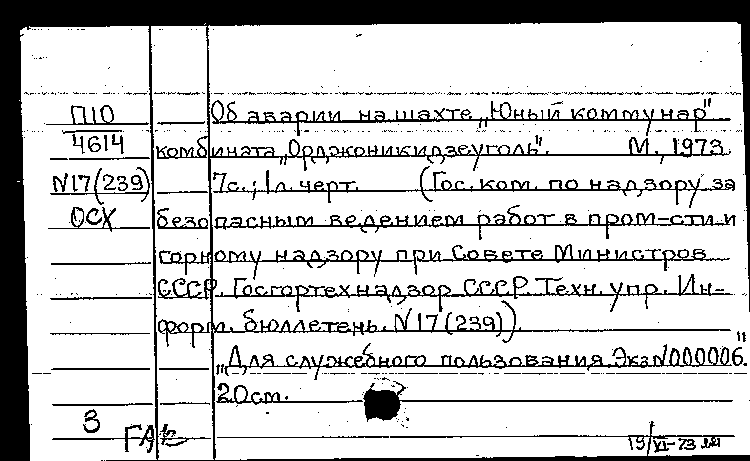 П10 Об аварии на шахте „Юный коммунар"
4614 комбината „Орджоникидзеуголь". М., 1973.
N17(239) 7с.; 1л. черт. (Гос. ком. по надзору за
ОСХ безопасным ведением работ в пром-сти и
горному надзору при Совете Министров
СССР. Госгортехнадзор СССР. Техн. упр. Ин-
форм. бюллетень. N17(239)).
„Для служебного пользования. Экз N000006."
20см.
3
19/VI-73